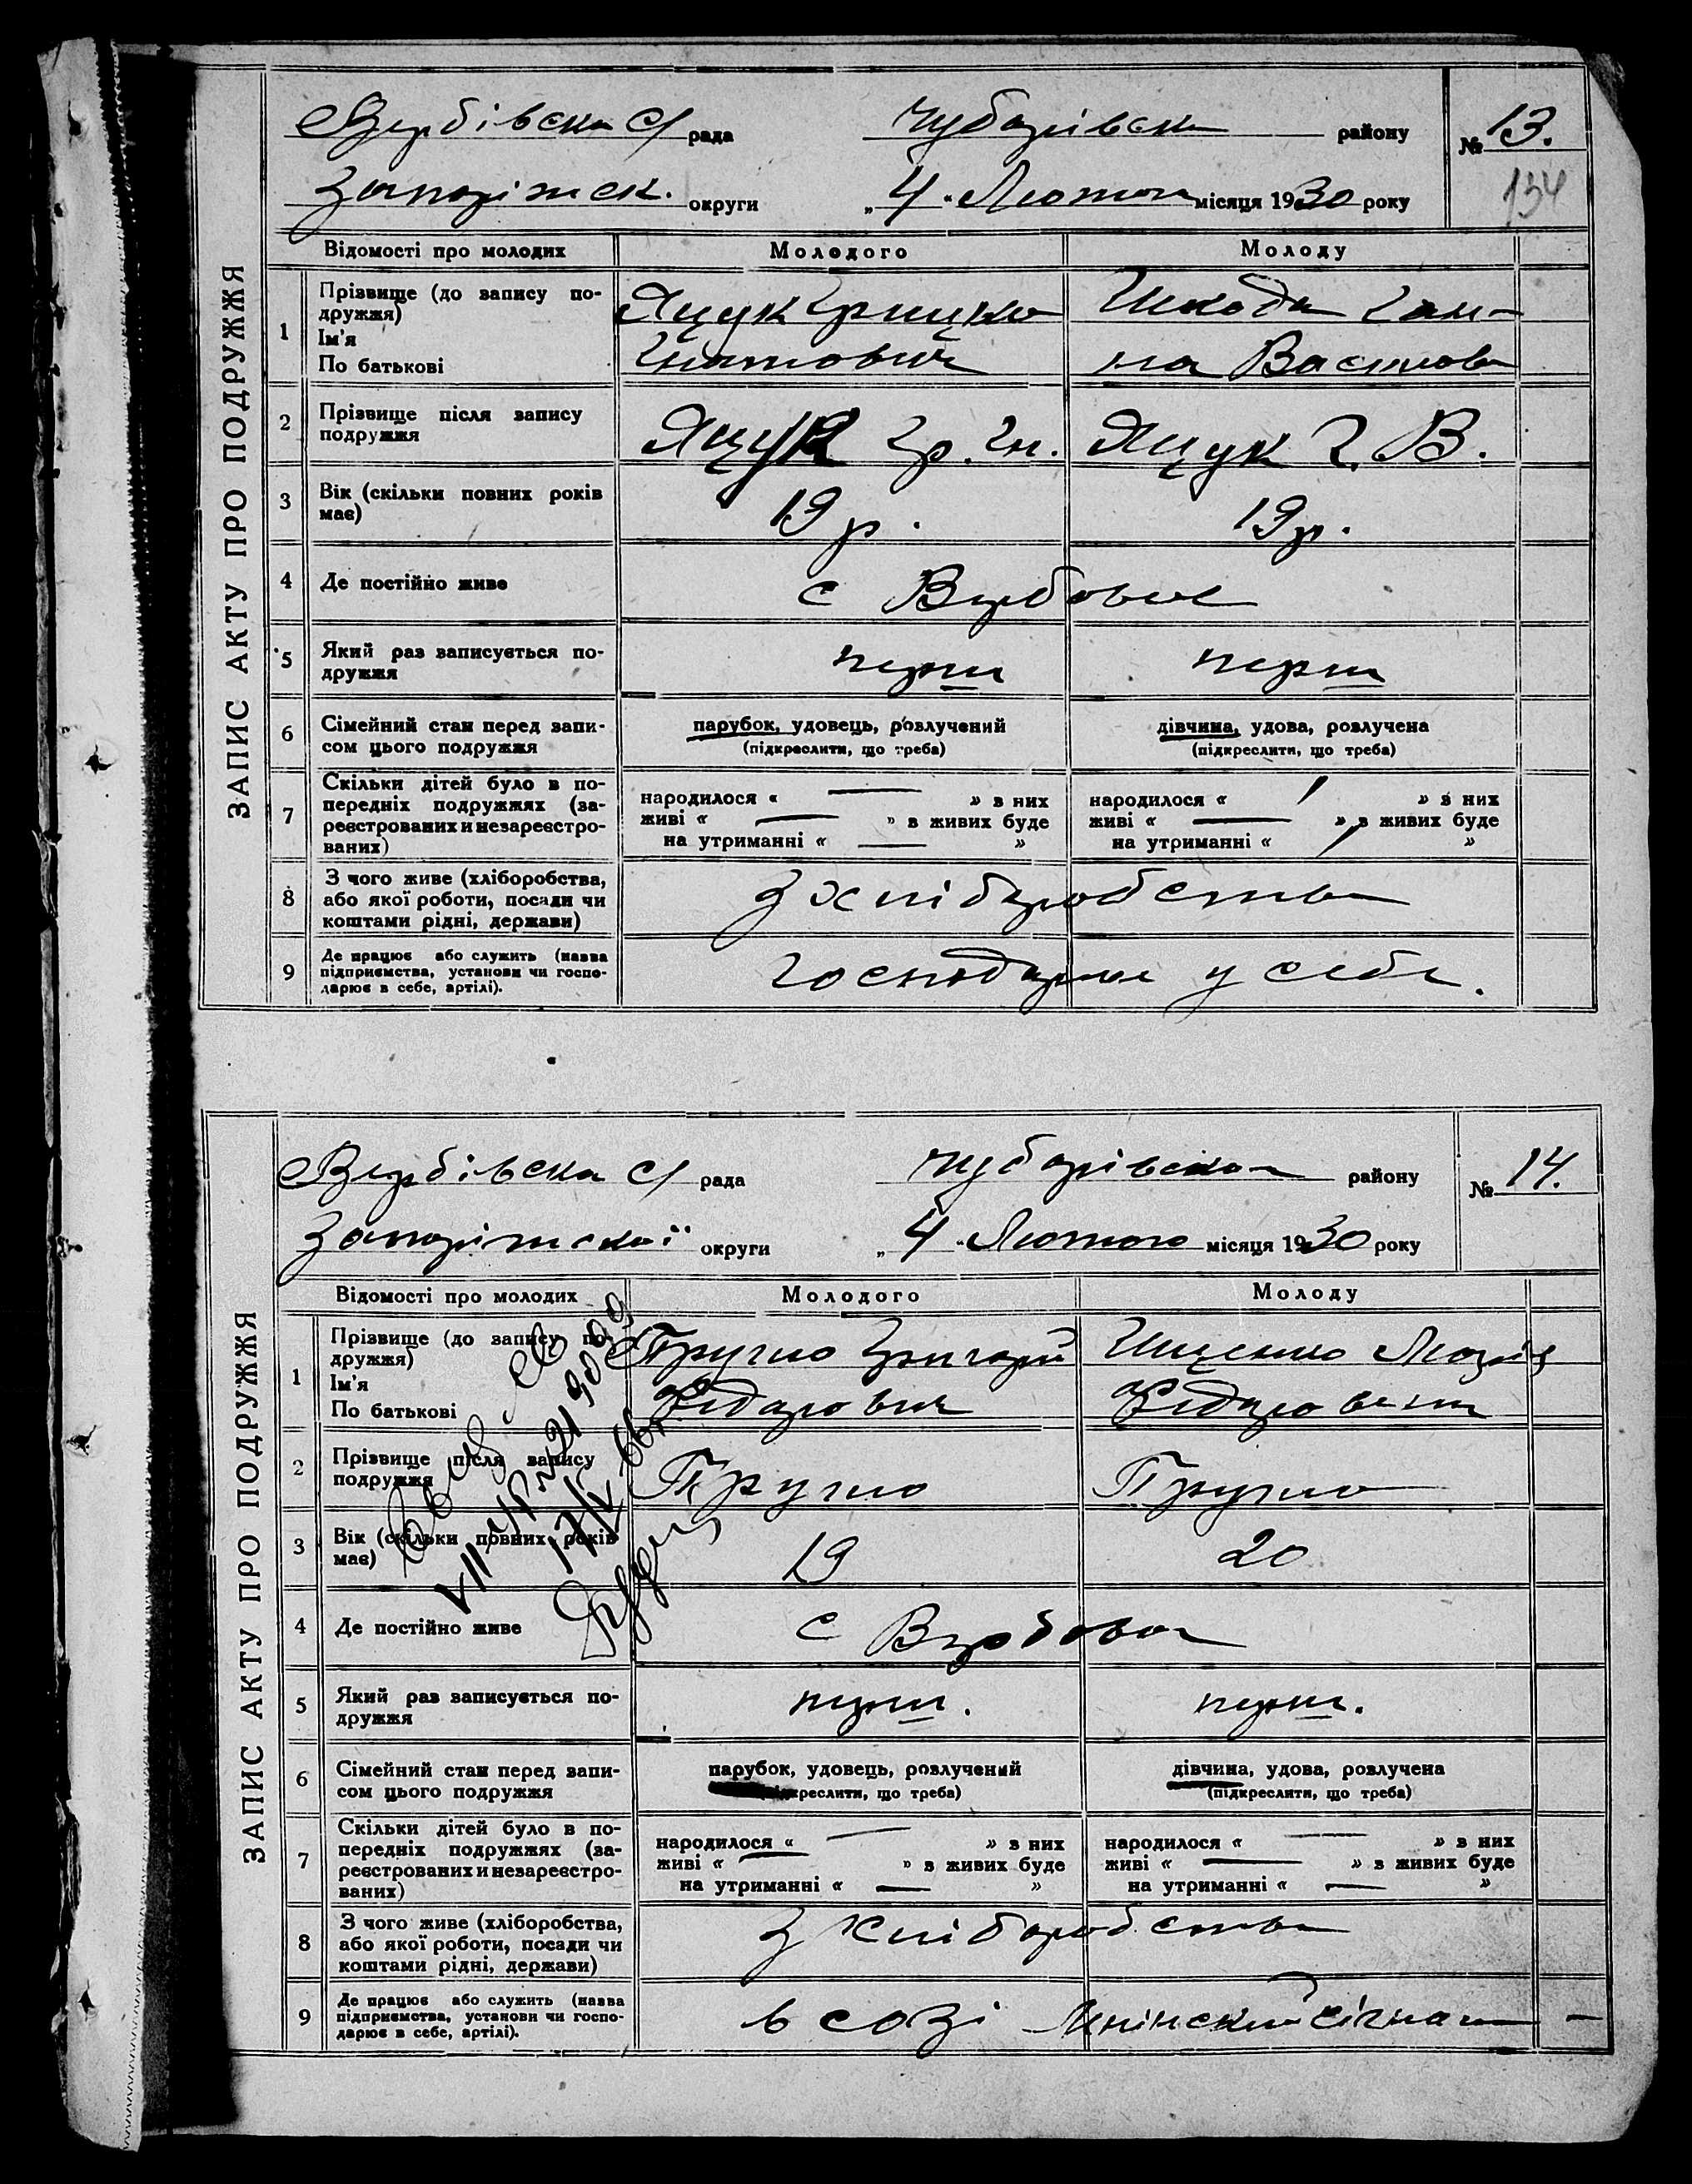 ЗАПИС АКТУ ПРО ПОДРУЖЖЯ
Вербівська с/ рада Чубарівськ району № 13.
134
Запоріжськ. округи „4“ Лютого місяця 1930 року
Відомості про молодих Молодого Молоду
1 Прізвище (до запису по-
дружжя)
Ім'я
По батькові
Яцук Грицько
Гнатович
Шкода Ган-
на Василов
2 Прізвище після запису
подружжя
Яцук Гр. Гн. Яцук Г. В.
3 Вік (скільки повних років
має)
19 р. 19 р.
4 Де постійно живе
с Вербове
5 Який раз записується по-
дружжя
перш перш
6 Сімейний стан перед запи-
сом цього подружжя
парубок, удовець, розлучений
(підкреслити, що треба)
дівчина, удова, розлучена
(підкреслити, що треба)
7 Скільки дітей було в по-
передніх подружжях (за-
реєстрованих и незареєстро-
ваних)
народилося « — » з них
живі « — » з живих буде
на утриманні « — »
народилося « » з них
живі « — » з живих буде
на утриманні « »
8 З чого живе (хліборобства,
або якої роботи, посади чи
коштами рідні, держави)
З хліборобства
9 Де працює або служить (назва
підприємства, установи чи госпо-
дарює в себе, артілі).
Господарює у себе.
ЗАПИС АКТУ ПРО ПОДРУЖЖЯ
Вербівська с/ рада Чубарівська району № 14.
Запоріжської округи „4“ Лютого місяця 1930 року
Відомості про молодих Молодого Молоду
1 Прізвище (до запису по-
дружжя)
Ім'я
По батькові
Пругло Григорій
Федорович
Іщенко
Федоровна
2 Прізвище після запису
подружжя
Пругло Пругло
3 Вік (скільки повних років
має)
19 20
4 Де постійно живе
с Вербове
5 Який раз записується по-
дружжя
перш. перш.
6 Сімейний стан перед запи-
сом цього подружжя
парубок, удовець, розлучений
(підкреслити, що треба)
дівчина, удова, розлучена
(підкреслити, що треба)
7 Скільки дітей було в по-
передніх подружжях (за-
реєстрованих и незареєстро-
ваних)
народилося « — » з них
живі « — » з живих буде
на утриманні « — »
народилося « — » з них
живі « — » з живих буде
на утриманні « — »
8 З чого живе (хліборобства,
або якої роботи, посади чи
коштами рідні, держави)
З хліборобства
9 Де працює або служить (назва
підприємства, установи чи госпо-
дарює в себе, артілі).
в созі